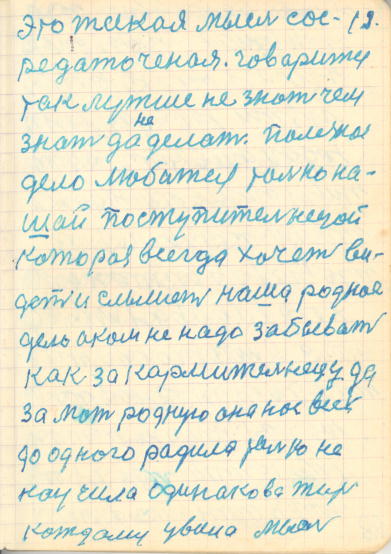 это такая мысл сос- 12.
редаточеная. говаритя
так лутше не знат чем
знат да не делат. Полезное
дело любится толко на-
шай поступителнецой
которая всегда хочет ви-
дет и слышет наша родное
дель оком не надо забыват
как за кармителнецу да
за мат родную она нас всех
до одного радила толко не
научила одинакова жит
каждому увила мысл